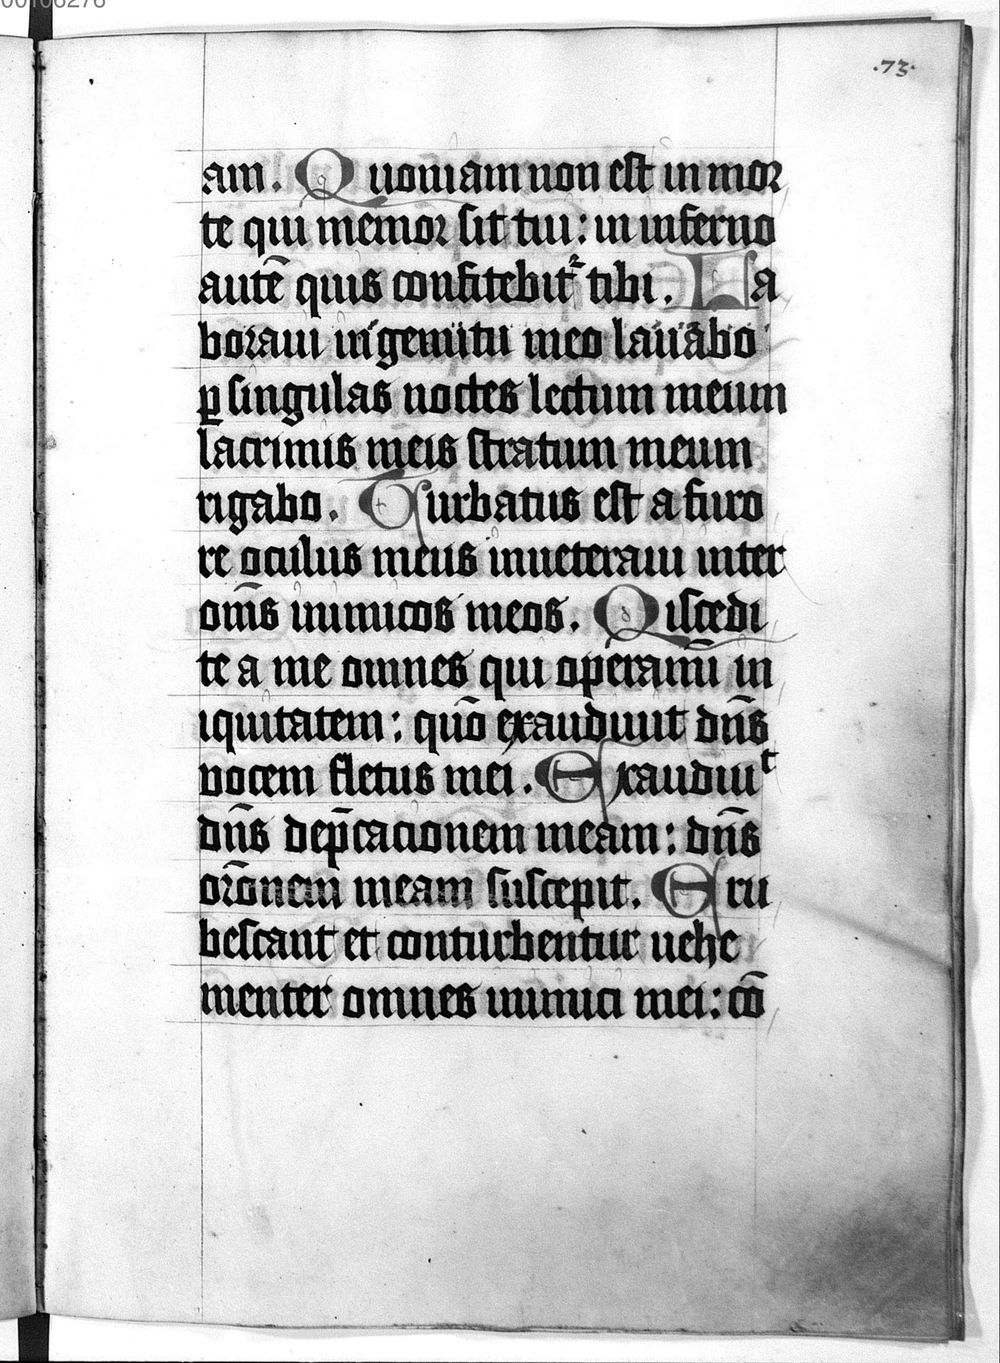 00106276
.73.
am. Quoniam non est in mor
te qui memor sit tui: in inferno
autē quis confitebit᷑ tibi. La
boraui in gemitu meo lauabo
ꝑ singulas noctes lectum meum
lacrimis meis stratum meum
rigabo. Turbatus est a furo
re oculus meus inueteraui inter
om̄s inimicos meos. Discedi
te a me omnes qui operamī in
iquitatem: quō exaudiuit dn̄s
vocem fletus mei. Exaudiuᵗ
dn̄s dep̄cacionem meam: dn̄s
or̄onem meam suscepit. Eru
bescant et conturbentur uehe
menter omnes inimici mei: cō